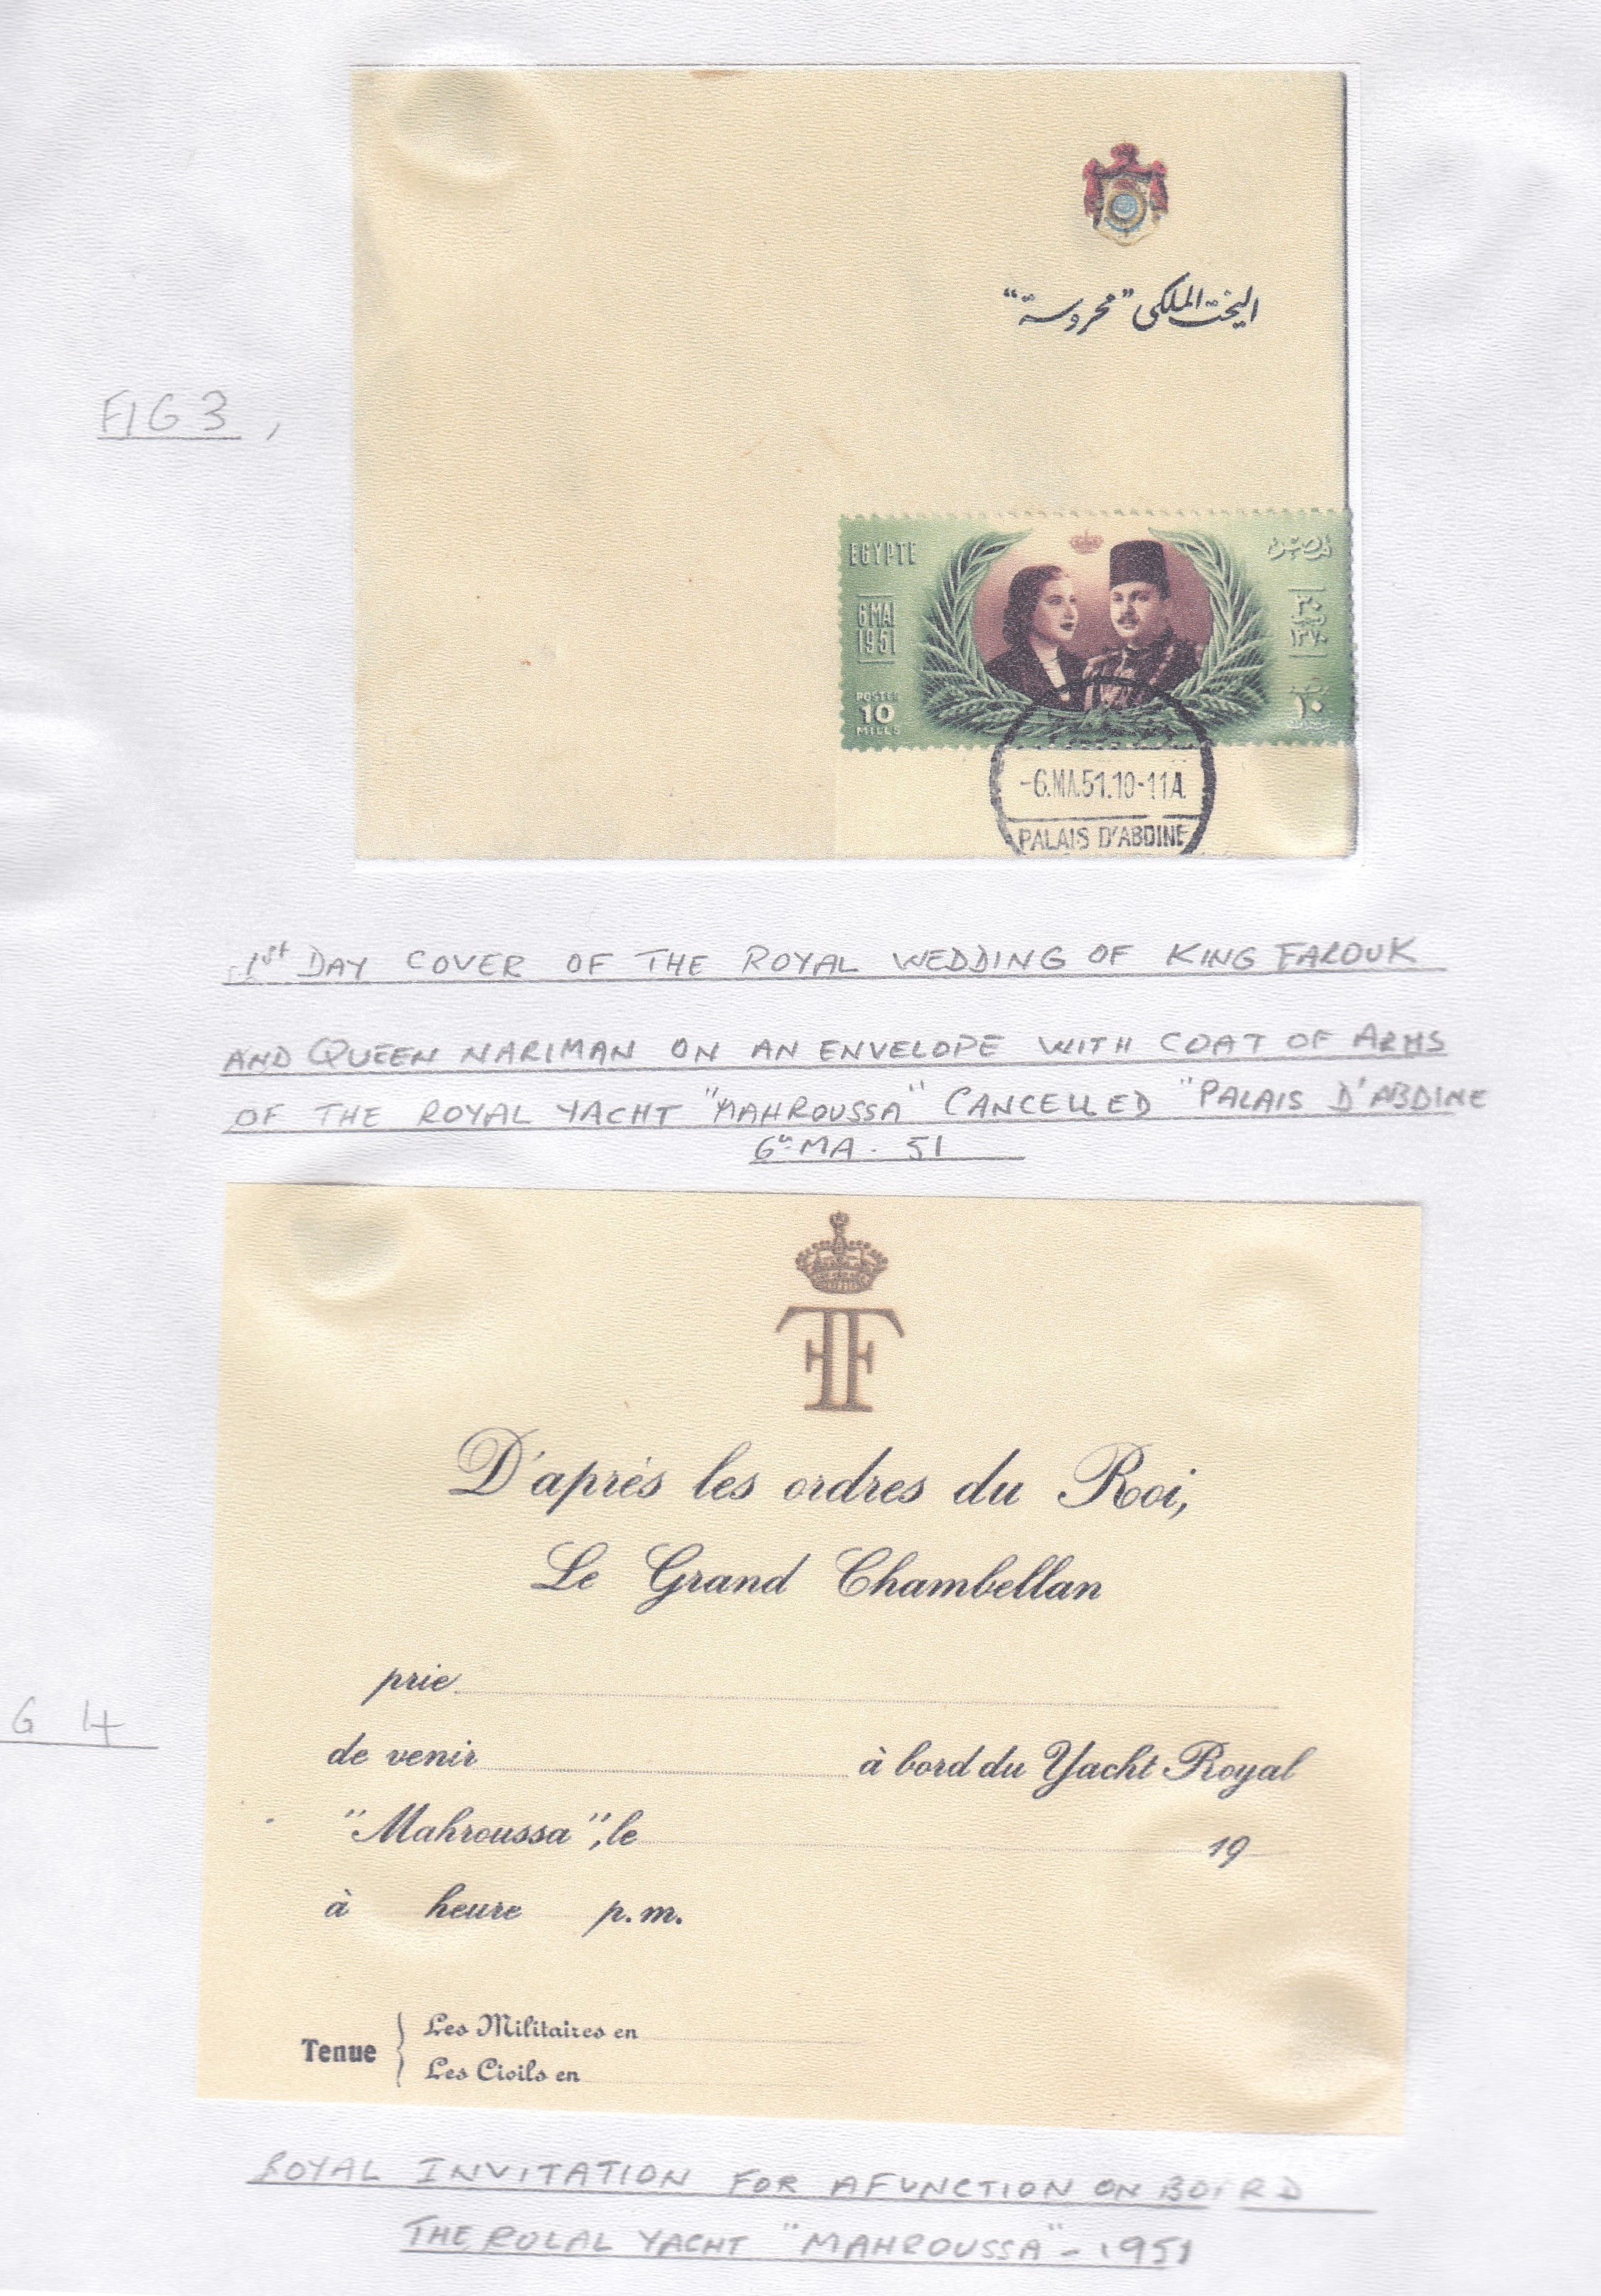 اليخت الملكى "محروسة"
FIG 3,
EGYPTE
مصر
6 MAI
1951
POSTES
10
MILLS
١٠
-6.MA.51.10-11A.
PALAIS D'ABDINE
1st DAY COVER OF THE ROYAL WEDDING OF KING FAROUK
AND QUEEN NARIMAN ON AN ENVELOPE WITH COAT OF ARMS
OF THE ROYAL YACHT "MAHROUSSA" CANCELLED "PALAIS D'ABDINE
6"-MA. 51
FF
D'après les ordres du Roi,
Le Grand Chambellan
prie
G 4
de venir à bord du Yacht Royal
"Mahroussa", le 19
à heure p.m.
Tenue { Les Militaires en
Les Civils en
ROYAL INVITATION FOR A FUNCTION ON BOARD
THE ROLAL YACHT "MAHROUSSA" - 1951